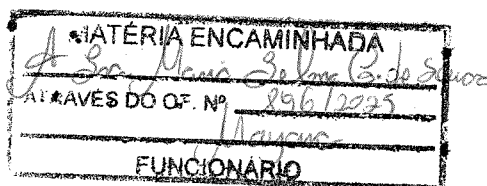 MATÉRIA ENCAMINHADA
A Sra. Maria Selma G. de Souza
ATRAVÉS DO OF. Nº 896/2025
Mayara
FUNCIONÁRIO